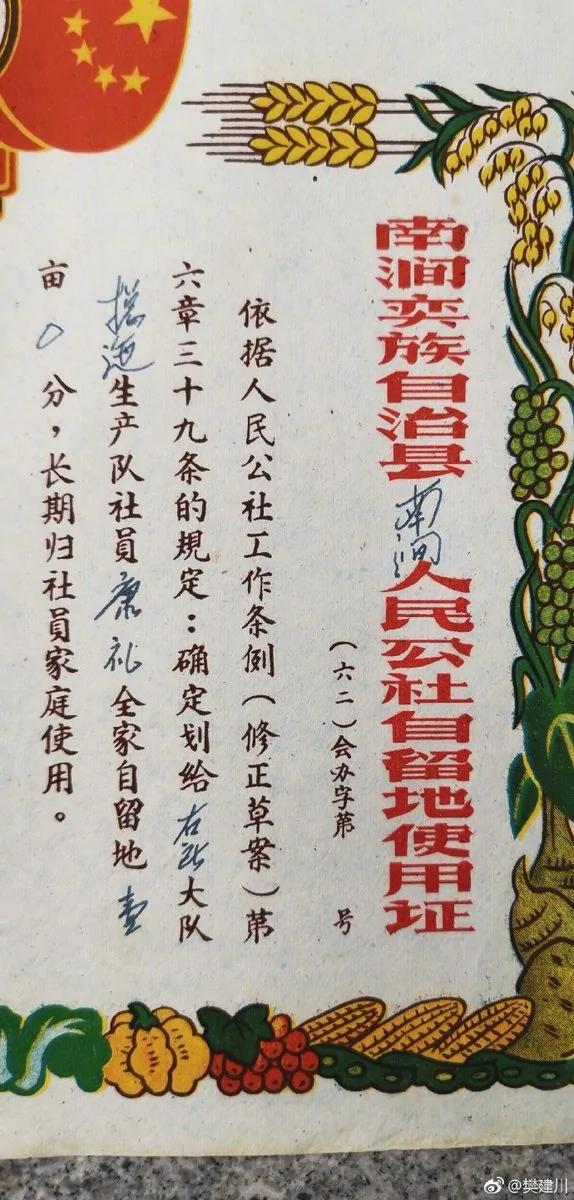 南涧奕族自治县南涧人民公社自留地使用证
（六二）会办字苐 号
依据人民公社工作条例（修正草案）苐
六章三十九条的規定：确定划给大队
生产队社員康礼全家自留地壹
亩0分，长期归社員家庭使用。
@樊建川